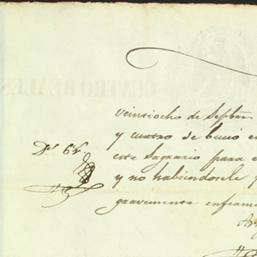 CUATRO REALES
veintiocho de Sefbre
y cuatro de
este Sagrario para e
y no habiendosele
gravemente enferm
Dr. 6 r.